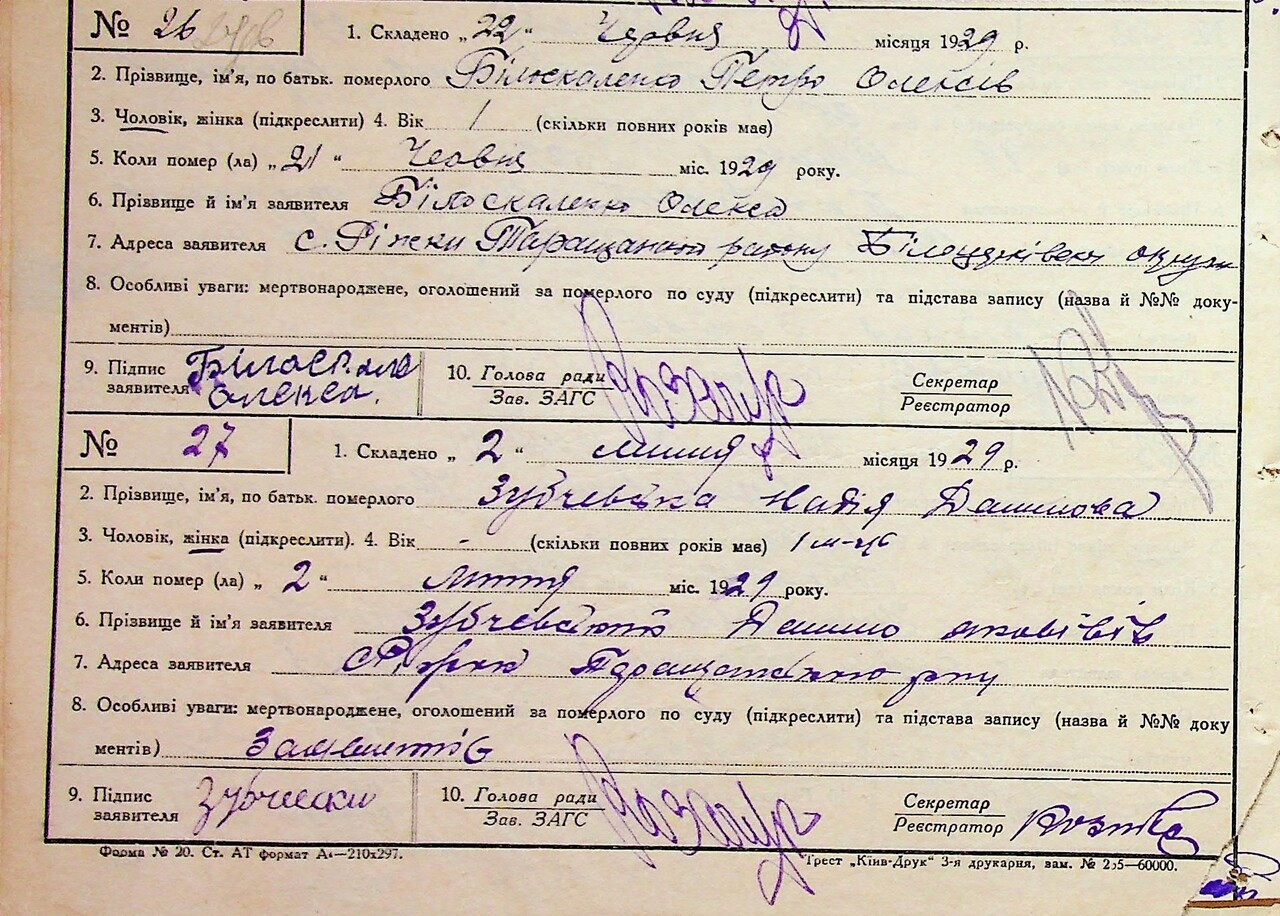 № 26
1. Складено „ 22 “ Червня місяця 1929 р.
2. Прізвище, ім'я, по батьк. померлого Білоскаленко Петро Олексів
3. Чоловік, жінка (підкреслити) 4. Вік 1 (скільки повних років має)
5. Коли помер (ла) „ 21 “ Червня міс. 1929 року.
6. Прізвище й ім'я заявителя Білоскаленко Олекса
7. Адреса заявителя с. Ріжки Таращанськ району Білоцерківськ округи
8. Особливі уваги: мертвонароджене, оголошений за померлого по суду (підкреслити) та підстава запису (назва й №№ доку-
ментів)
9. Підпис заявителя Олекса.
10. Голова ради
Зав. ЗАГС
Секретар
Реєстратор
№ 27
1. Складено „ 2 “ липня місяця 1929 р.
2. Прізвище, ім'я, по батьк. померлого Зубчевська Надія Данилова
3. Чоловік, жінка (підкреслити). 4. Вік - (скільки повних років має) 1 м-ць
5. Коли помер (ла) „ 2 “ липня міс. 1929 року.
6. Прізвище й ім'я заявителя Зубчевський Данило Яковів
7. Адреса заявителя с. Ріжки Таращанського р-ну
8. Особливі уваги: мертвонароджене, оголошений за померлого по суду (підкреслити) та підстава запису (назва й №№ доку
ментів)
9. Підпис заявителя
10. Голова ради
Зав. ЗАГС
Секретар
Реєстратор
Форма № 20. Ст. АТ формат А₄—210х297.
Трест „Київ-Друк“ 3-я друкарня, зам. № 235—60000.